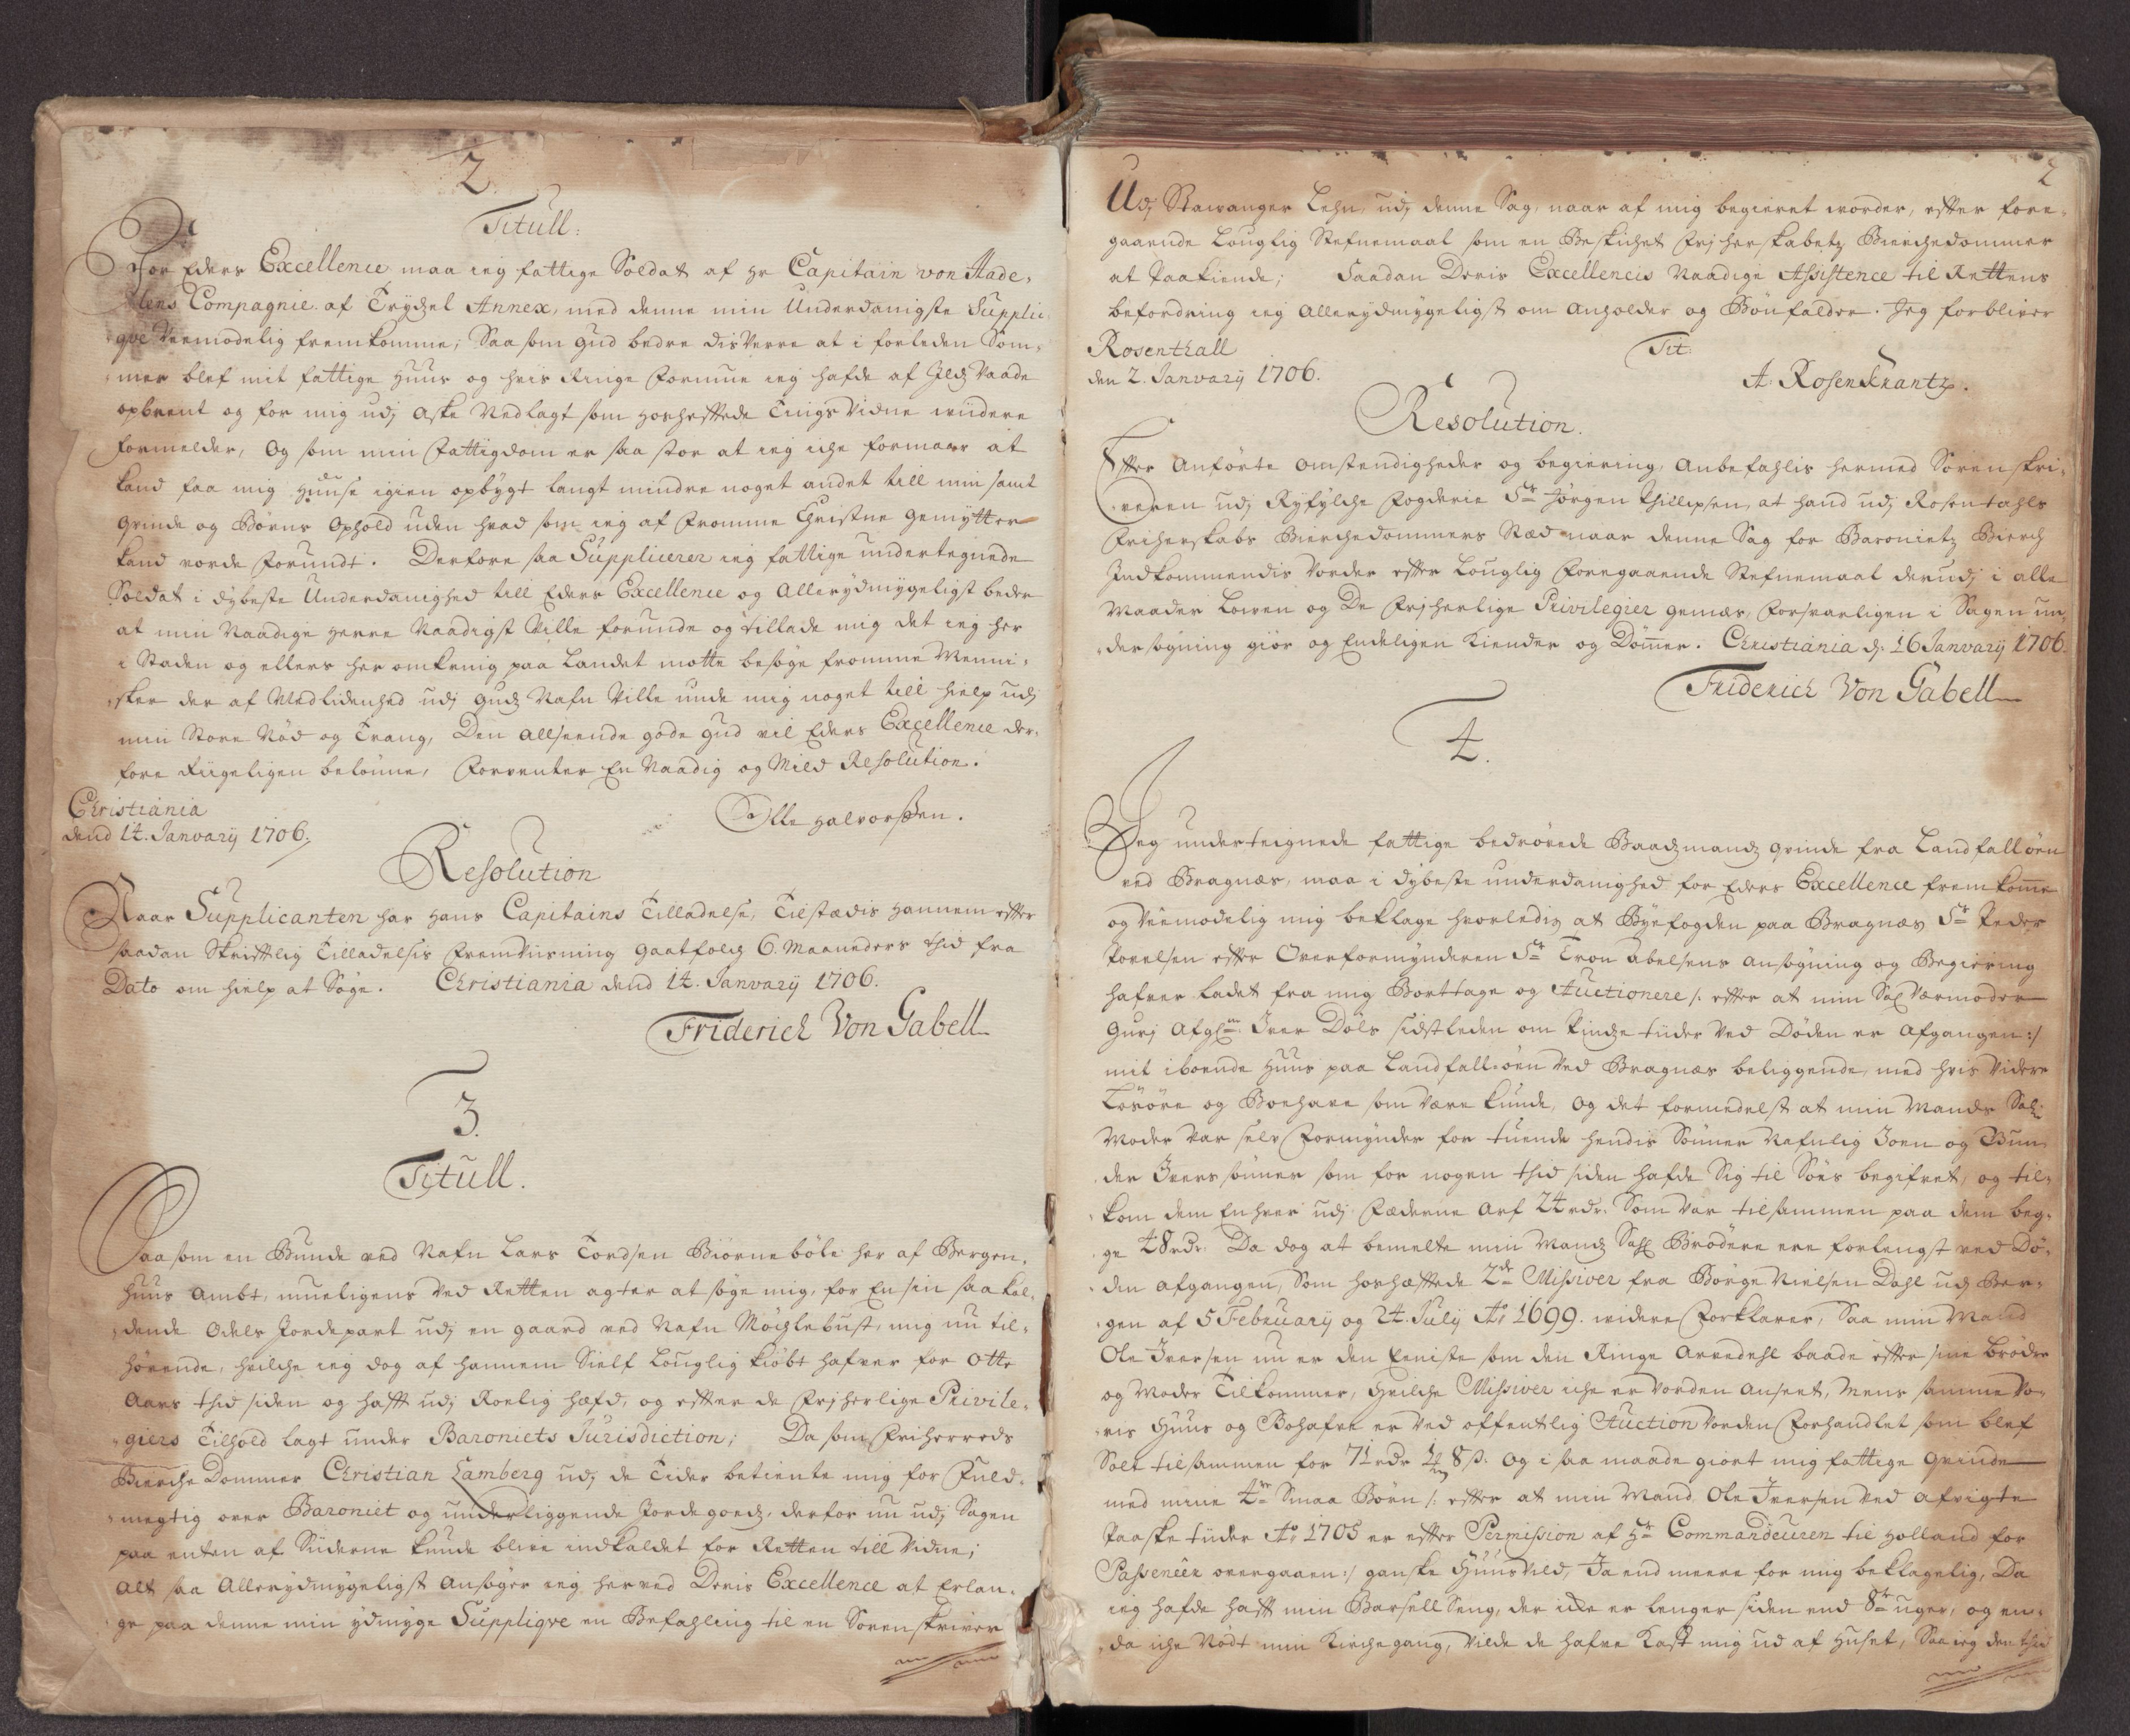 2.
Titull:
For Eders Excellence maa ieg fattige Soldat af Hr Capitain von Hade,
lens Compagnie af Trydzel Annex, med denne min Underdanigste Suppli
qve Veemodelig fremkomme, Saa som Gud bedre dis Verre at i forleden Som,
mer blef mit fattige Huus og hvis Ringe Formue ieg hafde af Ildz Vaade
opbrent og for mig udj Aske Nedlagt som hoshefftede Tings Vidne widere
formelder, Og som min Fattigdom er saa stor at ieg iche formaar at
kand faa mig Huuse igien opbygt langt mindre noget andet till min samt
Qvinde og Børns Ophold uden hvad som ieg af Fromme Christne Gemytter
kand vorde Forundt. Derfore saa Supplicerer ieg fattige undertegnede
Soldat i dybeste Underdanighed till Eders Excellence og Allerydmygeligst beder
at min Naadige Herre Naadigst Ville forunde og tillade mig det ieg her
i Staden og ellers her omkring paa Landet motte besøge fromme Menni,
sker der af Medlidenhed udj Gudz Nafn Ville unde mig noget till hielp udj
min Store Nød og Trang, Den allseende gode Gud vil Eders Excellence der,
fore Riigeligen belønne, Forventer En Naadig og Mild Resolution.
Christiania
dend 14. Janvarÿ 1706.
Olle Halvorsßen.
Resolution
Naar Supplicanten har Hans Capitains Tilladelse, Tilstædis Hannem effter
saadan Skrifftlig Tilladelsis Fremviisning Gaatfolch 6. Maaneders thid fra
Dato om hielp at Søge. Christiania dend 14. Janvarÿ 1706.
Friderich Von Gabell
3.
Titull.
Saasom en Bunde ved Nafn Lars Tordsen Biørnebøle her af Bergen,
huus Ambt, mueligens Ved Retten agter at søge mig, for En sin saa kal,
dende Odels Jordepart udj en gaard ved Nafn Møchlebust, mig nu til,
hørende, hvilche ieg dog af hannem Sielf Louglig kiøbt hafver for Otte
Aars thid siden og hafft udj Roelig Hæfd, og effter de Frjherlige Privile,
giers Tilhold lagt under Baroniets Jurisdiction; Da som Friherreds
Bierche Dommer Christian Lamberg udj de Tider betiente mig for Fuld,
megtig over Baroniet og underliggende Jordegodz, derfor nu udj Sagen
paa enten af Siiderne kunde blive indkaldet for Retten till Vidne;
Alt saa Allerydmygeligst Ansøger ieg herved Deris Excellence at Erlan,
ge paa denne min ydmyge Suppliqve en Befahling til en Sorenskriver
2
Udj Stawanger Lehn, udj denne Sag, naar af mig begieret worder, effter fore,
gaaende Louglig Stefnemaal som en Beskichet Frjherskabetz Bierchedommer
at Paakiende; Saadan Deris Excellencis Naadige Assistence til Rettens
befordring ieg Allerydmygeligst om Anholder og Bønfalder. Jeg forbliver
Rosenthall
den 2. Janvarÿ 1706.
Tit:
A: Rosenkrantz.
Resolution.
Effter Anførte omstendigheder og begiering, Anbefahlis hermed Sorenskri,
veren udj Ryfylche Fogderie Sr Jørgen Phillipsen, at hand udj Rosentahls
Friherskabs Bierchedommers Stæd naar denne Sag for Baronietz Bierch
Indkommendis Vorder effter Louglig Foregaaende Stefnemaal derudj i alle
Maader Lowen og De Frjherlige Privilegier gemæs, Forsvarligen i Sagen un,
dersøgning giør og Endeligen Kiender og Dømmer. Christiania dj: 16 Janvarÿ 1706.
Friderich Von Gabell
4.
Jeg underteignede fattige bedrøvede Baadzmandz Qvinde fra Landfalløen
ved Bragnæs, maa i dybeste underdanighed for Eders Excellence fremkomme
og Veemodelig mig beklage hvorledis at Byefogden paa Bragnæs Sr Peder
Povelsen effter Overformynderen Sr Tron Abelsens Ansøgning og Begiering
hafver ladet fra mig Borttage og Auctionere /: effter at min Sal Værmoder
Gurj Afgl Iver Døls sidstleden om Pindze tiider Ved Døden er Afgangen :/
mit iboende Huus paa Landfalløen Ved Bragnæs beliggende, med hvis Videre
Løsøre og Boehave som Være kunde, og det formedelst at min Mands Sal:
Moder Var selv Formynder for tuende hendis Sønner Nafnlig Joen og Bun
der Ivers sønner som for nogen thid siden hafde Sig til Søes begifvet, og til,
kom dem Enhver udj Fæderne Arf 24 rdr. Som Var tilsammen paa dem beg,
ge 48 rdr. Da dog at bemelte min Mandz Sahl Brødre ere forlengst ved Dø,
den afgangen, Som hoshæfftede 2de Missiver fra Børge Nielsen Dahl udj Ber,
gen af 5 Februarÿ og 24. Julÿ Ao 1699. widere Forklarer, Saa min Mand
Ole Iversen nu er den Eeniste som den Ringe Arvedehl baade effter sine brødre
og Moder Tilkommer, Hvilche Missiver iche er Vorden Anseet, Mens samme Vo,
ris Huus og Bohafve er Ved offentlig Auction Vorden Forhandlet som blef
Solt tilsammen for 71 rdr 1 8 s. Og i saa maade giort mig fattige Qvinde
med mine 4re Smaa Børn /: effter at min Mand Ole Iversen Ved afvigte
Paaske tiider Ao 1705 er effter Permission af Hr Commandeuren til Holland for
Passeneer overgaaen :/ ganske Huusvild, Ja end meere for mig beklagelig, Da
ieg hafde hafft min Barsell Seng, der icke er lenger siden end 8te uger, og en,
da iche Nødt min Kirchegang, Vilde de hafve Kast mig ud af Huset, Saa ieg den thid